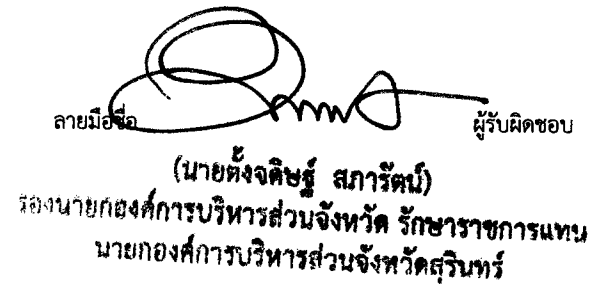 ลายมือชื่อ ผู้รับผิดชอบ
(นายตั้งจดิษฐ์ สภารัตน์)
รองนายกองค์การบริหารส่วนจังหวัด รักษาราชการแทน
นายกองค์การบริหารส่วนจังหวัดสุรินทร์